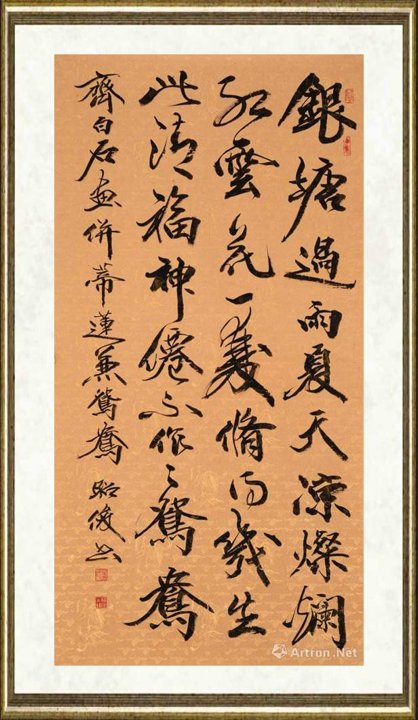 銀塘過雨夏天凉燦爛
紅雲花一雙脩得幾生
此清福神僊不作〻鴛鴦
齊白石畫併蒂蓮兼鴛鴦 昭俊書
Artron.Net